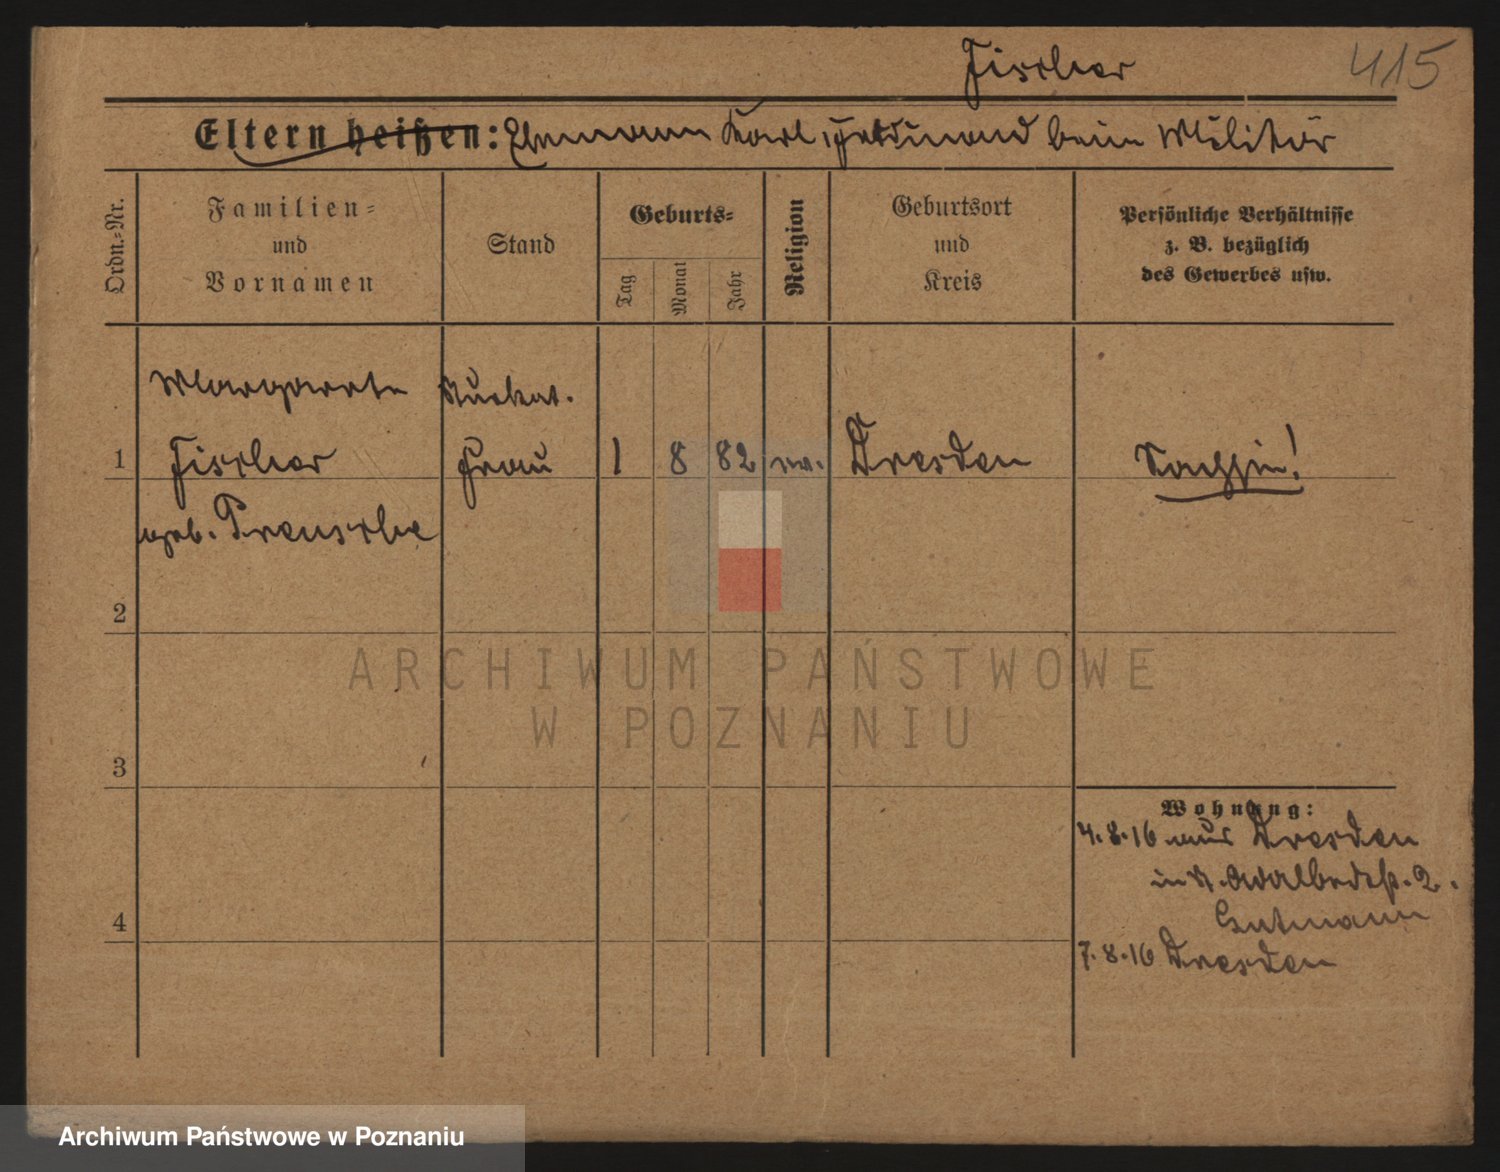 Fischer 415
Eltern heißen: Ehemann Karl, Ferdinand beim Militär
Ordn.-Nr.
Familien-
und
Vornamen
Stand
Geburts-
Tag
Monat
Jahr
Religion
Geburtsort
und
Kreis
Persönliche Verhältnisse
z. B. bezüglich
des Gewerbes usw.
Margarete
Stuckat.
1 Fischer Frau 1 8 82 ev. Dresden Sachsin!
geb. Preusche
2
3
4
Wohnung:
4.8.16 aus Dresden
in St.
Gutmann
7.8.16 Dresden
ARCHIWUM PAŃSTWOWE
W POZNANIU
Archiwum Państwowe w Poznaniu